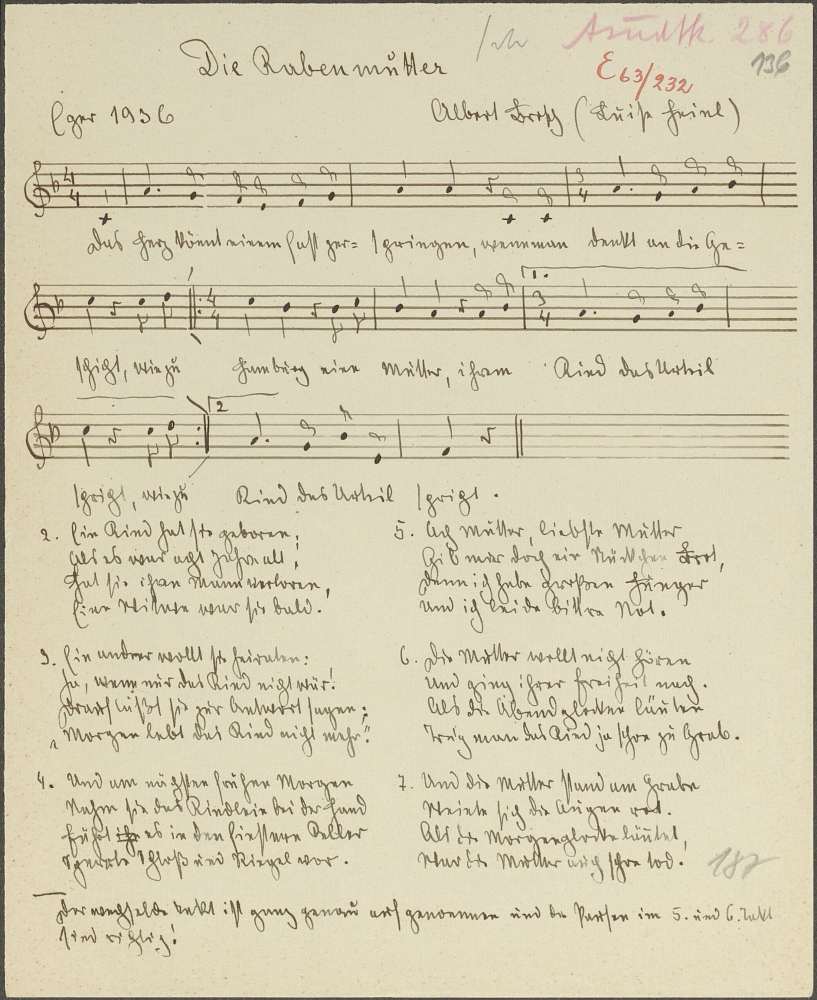 Die Rabenmutter
286
136
E 63/232
Eger 1936
Albert Brosch (Luise Heinl)
Das Herz könnt einem fast zer- springen, wenn man denkt an die Ge=
1.
schicht, wie zu Hamburg eine Mutter, ihrem Kind das Urteil
2
spricht, wie zu Kind das Urteil spricht.
2. Ein Kind hat sie geboren,
Als es war acht Jahre alt,
Hat sie ihren Mann verloren,
Eine Witwe war sie bald.
3. Ein andrer wollt sie heiraten:
Ja, wenn nur das Kind nicht wär!
Drauf läßt sie zur Antwort sagen:
"Morgen lebt das Kind nicht mehr."
4. Und am nächsten frühen Morgen
Nahm sie das Kindlein bei der Hand
Führt es in den finstern Keller
Sperrte Schloß und Riegel vor.
5. Ach Mutter, liebste Mutter
Gib mir doch ein Stückchen Brot,
Denn ich habe großen Hunger
Und ich leide bittre Not.
6. Die Mutter wollt nicht hören
Und ging ihrer Freiheit nach.
Als die Abendglocken läuten
Trug man das Kind ja schon zu Grab.
7. Und die Mutter stand am Grabe
Weinte sich die Augen rot.
Als die Morgenglocke läutet,
War die Mutter auch schon tod.
187
Der wechselde Takt ist ganz genau aufgenommen und die Pausen im 5. und 6. Takt
sind richtig!